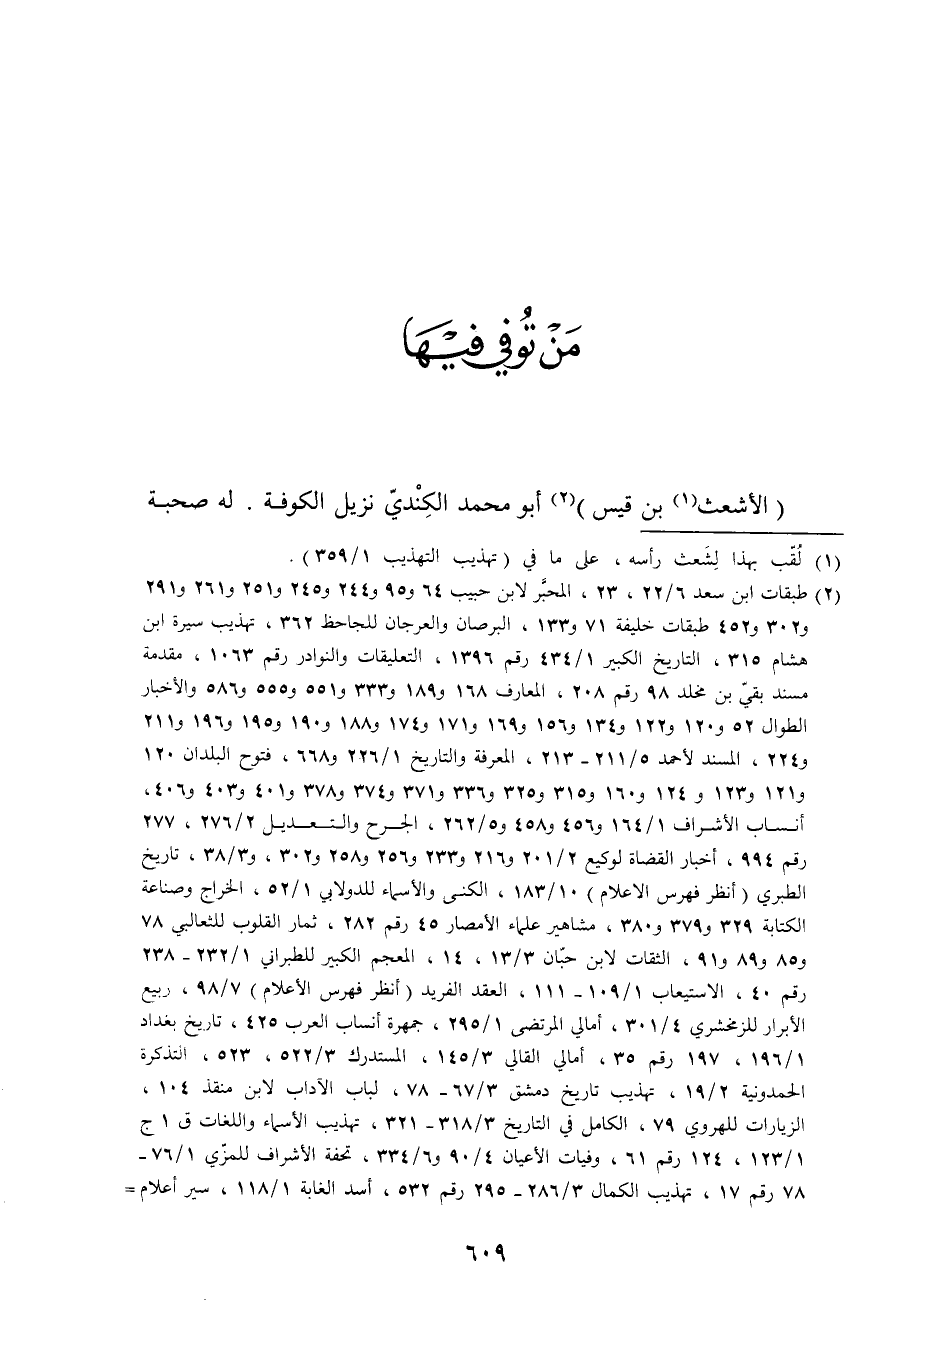 مَنْ تُوُفي فيْهَا
( الأشعث(١) بن قيس )(٢) أبو محمد الكِنْديّ نزيل الكوفة . له صحبة
(١) لُقّب بهذا لِشَعث رأسه ، على ما في ( تهذيب التهذيب ٣٥٩/١ ) .
(٢) طبقات ابن سعد ٢٢/٦ ، ٢٣ ، المحبَّر لابن حبيب ٦٤ و٩٥ و٢٤٤ و٢٤٥ و٢٥١ و٢٦١ و٢٩١
و٣٠٢ و٤٥٢ طبقات خليفة ٧١ و١٣٣ ، البرصان والعرجان للجاحظ ٣٦٢ ، تهذيب سيرة ابن
هشام ٣١٥ ، التاريخ الكبير ٤٣٤/١ رقم ١٣٩٦ ، التعليقات والنوادر رقم ١٠٦٣ ، مقدمة
مسند بقيّ بن مخلد ٩٨ رقم ٢٠٨ ، المعارف ١٦٨ و١٨٩ و٣٣٣ و٥٥١ و٥٥٥ و٥٨٦ والأخبار
الطوال ٥٢ و١٢٠ و١٢٢ و١٣٤ و١٥٦ و١٦٩ و١٧١ و١٧٤ و١٨٨ و١٩٠ و١٩٥ و١٩٦ و٢١١
و٢٢٤ ، المسند لأحمد ٢١١/٥ - ٢١٣ ، المعرفة والتاريخ ٢٢٦/١ و٦٦٨ ، فتوح البلدان ١٢٠
و١٢١ و١٢٣ و ١٢٤ و١٦٠ و٣١٥ و٣٢٥ و٣٣٦ و٣٧١ و٣٧٤ و٣٧٨ و٤٠١ و٤٠٣ و٤٠٦ ،
أنساب الأشراف ١٦٤/١ و٤٥٦ و٤٥٨ و٢٦٢/٥ ، الجرح والتعديل ٢٧٦/٢ ، ٢٧٧
رقم ٩٩٤ ، أخبار القضاة لوكيع ٢٠١/٢ و٢١٦ و٢٣٣ و٢٥٦ و٢٥٨ و٣٠٢ ، و٣٨/٣ ، تاريخ
الطبري ( أنظر فهرس الاعلام ) ١٨٣/١٠ ، الكنى والأسماء للدولابي ٥٢/١ ، الخراج وصناعة
الكتابة ٣٢٩ و٣٧٩ و٣٨٠ ، مشاهير علماء الأمصار ٤٥ رقم ٢٨٢ ، ثمار القلوب للثعالبي ٧٨
و٨٥ و٨٩ و٩١ ، الثقات لابن حبّان ١٣/٣ ، ١٤ ، المعجم الكبير للطبراني ٢٣٢/١ - ٢٣٨
رقم ٤٠ ، الاستيعاب ١٠٩/١ - ١١١ ، العقد الفريد ( أنظر فهرس الأعلام ) ٩٨/٧ ، ربيع
الأبرار للزمخشري ٣٠١/٤ ، أمالي المرتضى ٢٩٥/١ ، جمهرة أنساب العرب ٤٢٥ ، تاريخ بغداد
١٩٦/١ ، ١٩٧ رقم ٣٥ ، أمالي القالي ١٤٥/٣ ، المستدرك ٥٢٢/٣ ، ٥٢٣ ، التذكرة
الحمدونية ١٩/٢ ، تهذيب تاريخ دمشق ٦٧/٣ - ٧٨ ، لباب الآداب لابن منقذ ١٠٤ ،
الزيارات للهروي ٧٩ ، الكامل في التاريخ ٣١٨/٣ - ٣٢١ ، تهذيب الأسماء واللغات ق ١ ج
١٢٣/١ ، ١٢٤ رقم ٦١ ، وفيات الأعيان ٩٠/٤ و٣٣٤/٦ ، تحفة الأشراف للمزّي ٧٦/١ -
٧٨ رقم ١٧ ، تهذيب الكمال ٢٨٦/٣ - ٢٩٥ رقم ٥٣٢ ، أسد الغابة ١١٨/١ ، سير أعلام =
٦٠٩